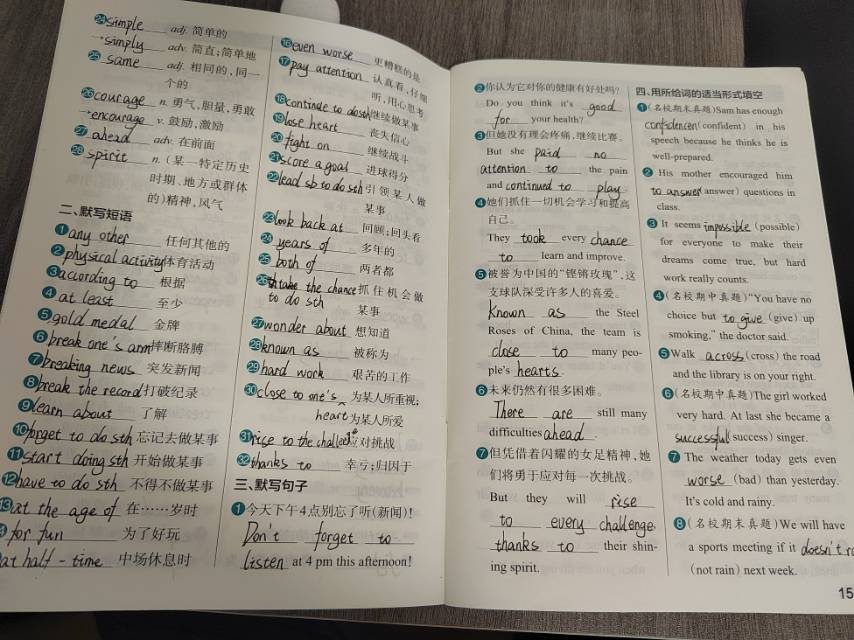 ㉔simple adj. 简单的
→simply adv. 简直;简单地
㉕same adj. 相同的,同一
个的
㉖courage n. 勇气,胆量,勇敢
→encourage v. 鼓励,激励
㉗ahead adv. 在前面
㉘spirit n. (某一特定历史
时期、地方或群体
的)精神,风气
二、默写短语
①any other 任何其他的
②physical activity体育活动
③according to 根据
④at least 至少
⑤gold medal 金牌
⑥break one's arm摔断胳膊
⑦breaking news 突发新闻
⑧break the record打破纪录
⑨learn about 了解
⑩forget to do sth 忘记去做某事
⑪start doing sth 开始做某事
⑫have to do sth 不得不做某事
⑬at the age of 在……岁时
for fun 为了好玩
at half-time 中场休息时
⑯even worse 更糟糕的是
⑰pay attention 认真看,仔细
听,用心思考
⑱continue to do sth继续做某事
⑲lose heart 丧失信心
⑳fight on 继续战斗
㉑score a goal 进球得分
㉒lead sb to do sth引领某人做
某事
㉓look back at 回顾;回头看
㉔years of 多年的
㉕both of 两者都
㉖take the chance抓住机会做
to do sth 某事
㉗wonder about 想知道
㉘known as 被称为
㉙hard work 艰苦的工作
㉚close to one's 为某人所重视;
heart为某人所爱
㉛rise to the challenge应对挑战
㉜thanks to 幸亏;归因于
三、默写句子
①今天下午4点别忘了听(新闻)!
Don't forget to
listen at 4 pm this afternoon!
②你认为它对你的健康有好处吗?
Do you think it's good
for your health?
③但她没有理会疼痛,继续比赛。
But she paid no
attention to the pain
and continued to play
④她们抓住一切机会学习和提高
自己。
They took every chance
to learn and improve.
⑤被誉为中国的“铿锵玫瑰”,这
支球队深受许多人的喜爱。
Known as the Steel
Roses of China, the team is
close to many peo-
ple's hearts.
⑥未来仍然有很多困难。
There are still many
difficulties ahead.
⑦但凭借着闪耀的女足精神,她
们将勇于应对每一次挑战。
But they will rise
to every challenge
thanks to their shin-
ing spirit.
四、用所给词的适当形式填空
①(名校期末真题)Sam has enough
confidence(confident) in his
speech because he thinks he is
well-prepared.
②His mother encouraged him
to answer(answer) questions in
class.
③It seems impossible(possible)
for everyone to make their
dreams come true, but hard
work really counts.
④(名校期中真题)“You have no
choice but to give(give) up
smoking,” the doctor said.
⑤Walk across(cross) the road
and the library is on your right.
⑥(名校期中真题)The girl worked
very hard. At last she became a
successful(success) singer.
⑦The weather today gets even
worse(bad) than yesterday.
It's cold and rainy.
⑧(名校期末真题)We will have
a sports meeting if it doesn't
(not rain) next week.
15